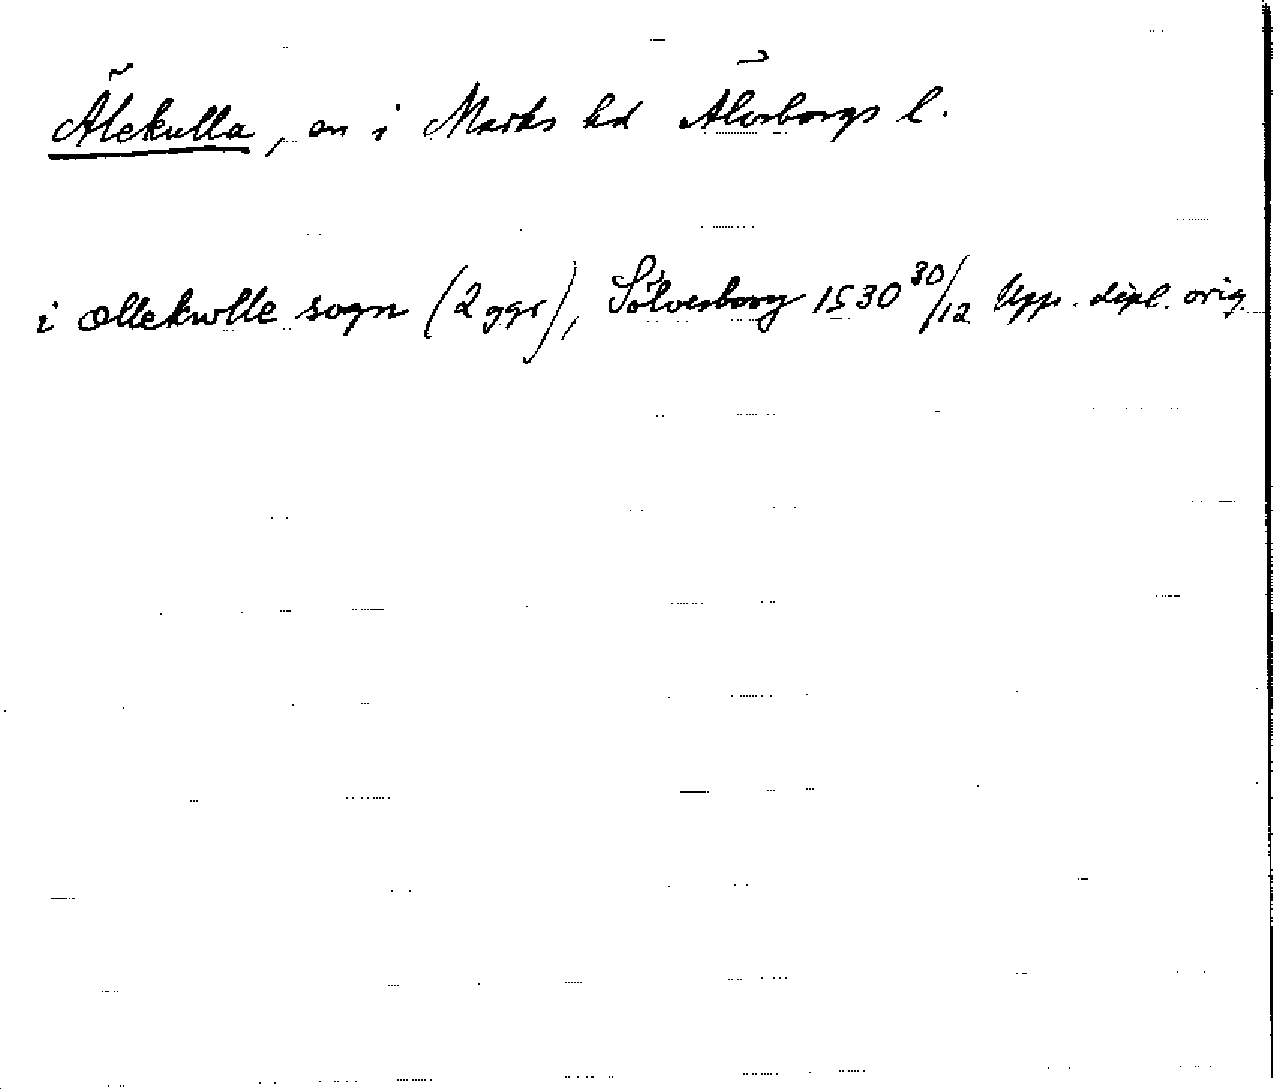 Älekulla, sn i Marks hd Älvsborgs l.
i ællekwlle sogn (2 ggr), Sölvesborg 1530 30/12 Upp. dipl. orig.